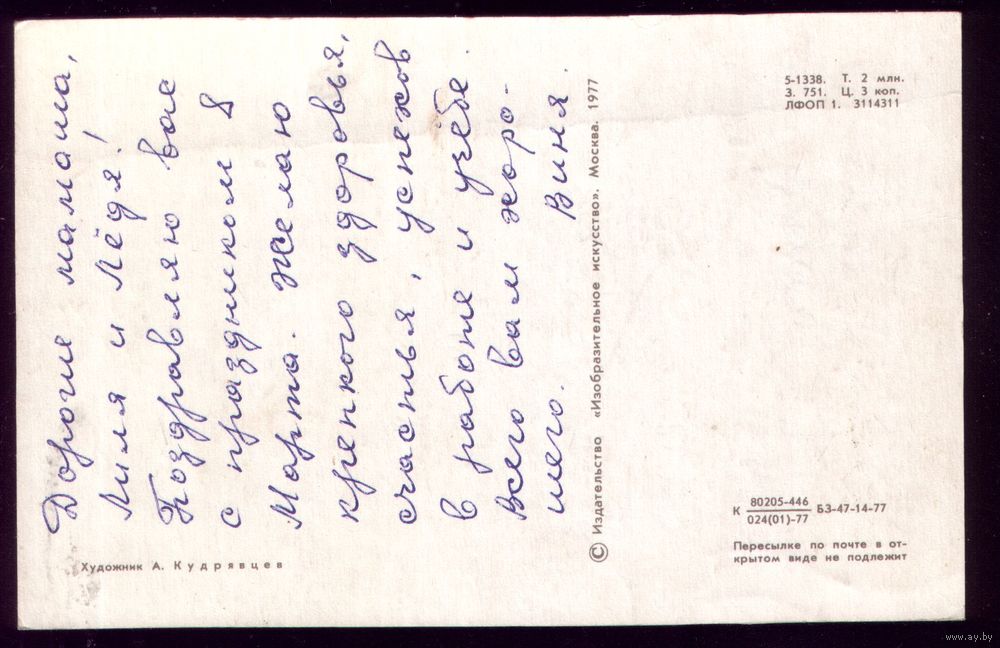 Дорогие мамаша,
Лиля и Лёдя!
Поздравляю вас
с праздником 8
Марта. Желаю
крепкого здоровья,
счастья, успехов
в работе и учёбе.
Всего вам хоро-
шего. Виня.
Художник А. Кудрявцев
© Издательство «Изобразительное искусство». Москва. 1977
5-1338. Т. 2 млн.
З. 751. Ц. 3 коп.
ЛФОП 1. 3114311
К 80205-446 БЗ-47-14-77
024(01)-77
Пересылке по почте в от-
крытом виде не подлежит
www.ay.by